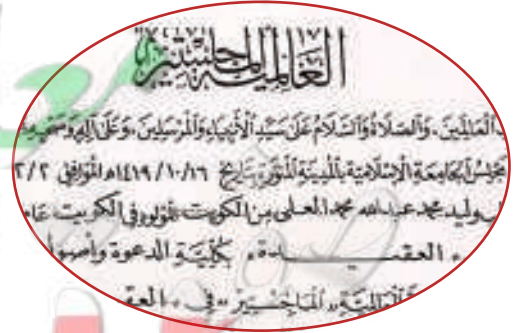 العالمية الماجستير
العالمين، والصلاة والسلام على سيد الأنبياء والمرسلين، وعلى آله وصحبه
مجلس الجامعة الإسلامية بالمدينة المنورة بتاريخ ١٤١٩/١٠/١٦هـ الموافق ٢/٢
وليد محمد عبدالله محمد العلي من الكويت المولود في الكويت عام
العقيدة، بكلية الدعوة وأصول
العالمية "الماجستير" في